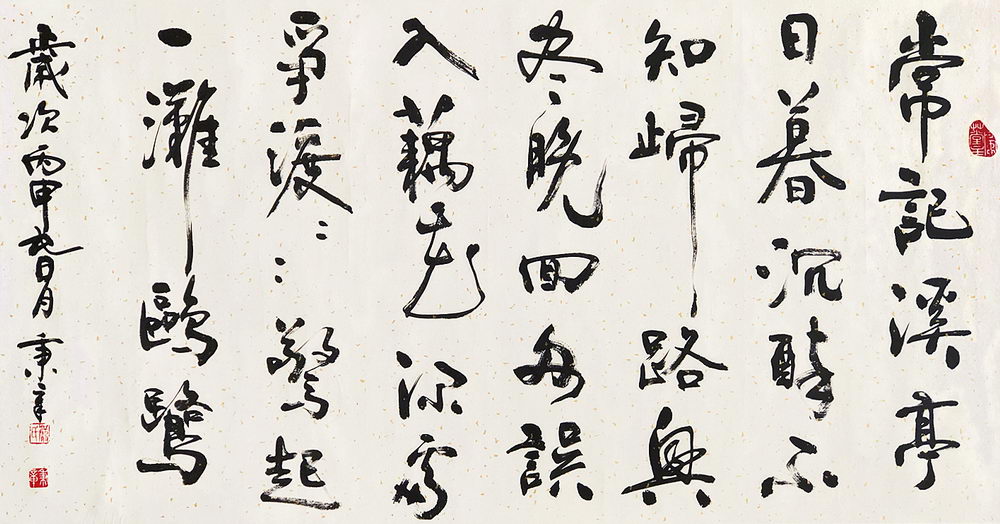 常記溪亭
日暮沉醉不
知歸路興
尽晚回舟誤
入藕花深處
爭渡〻〻驚起
一灘鷗鷺
歲次丙申